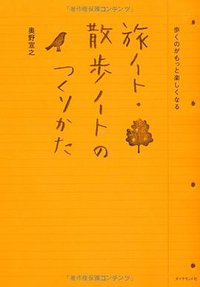 「著作権保護コンテンツ」
歩くのがもっと楽しくなる
旅ノート・
散歩ノートの
つくりかた
奥野宣之
ダイヤモンド社
「著作権保護コンテンツ」